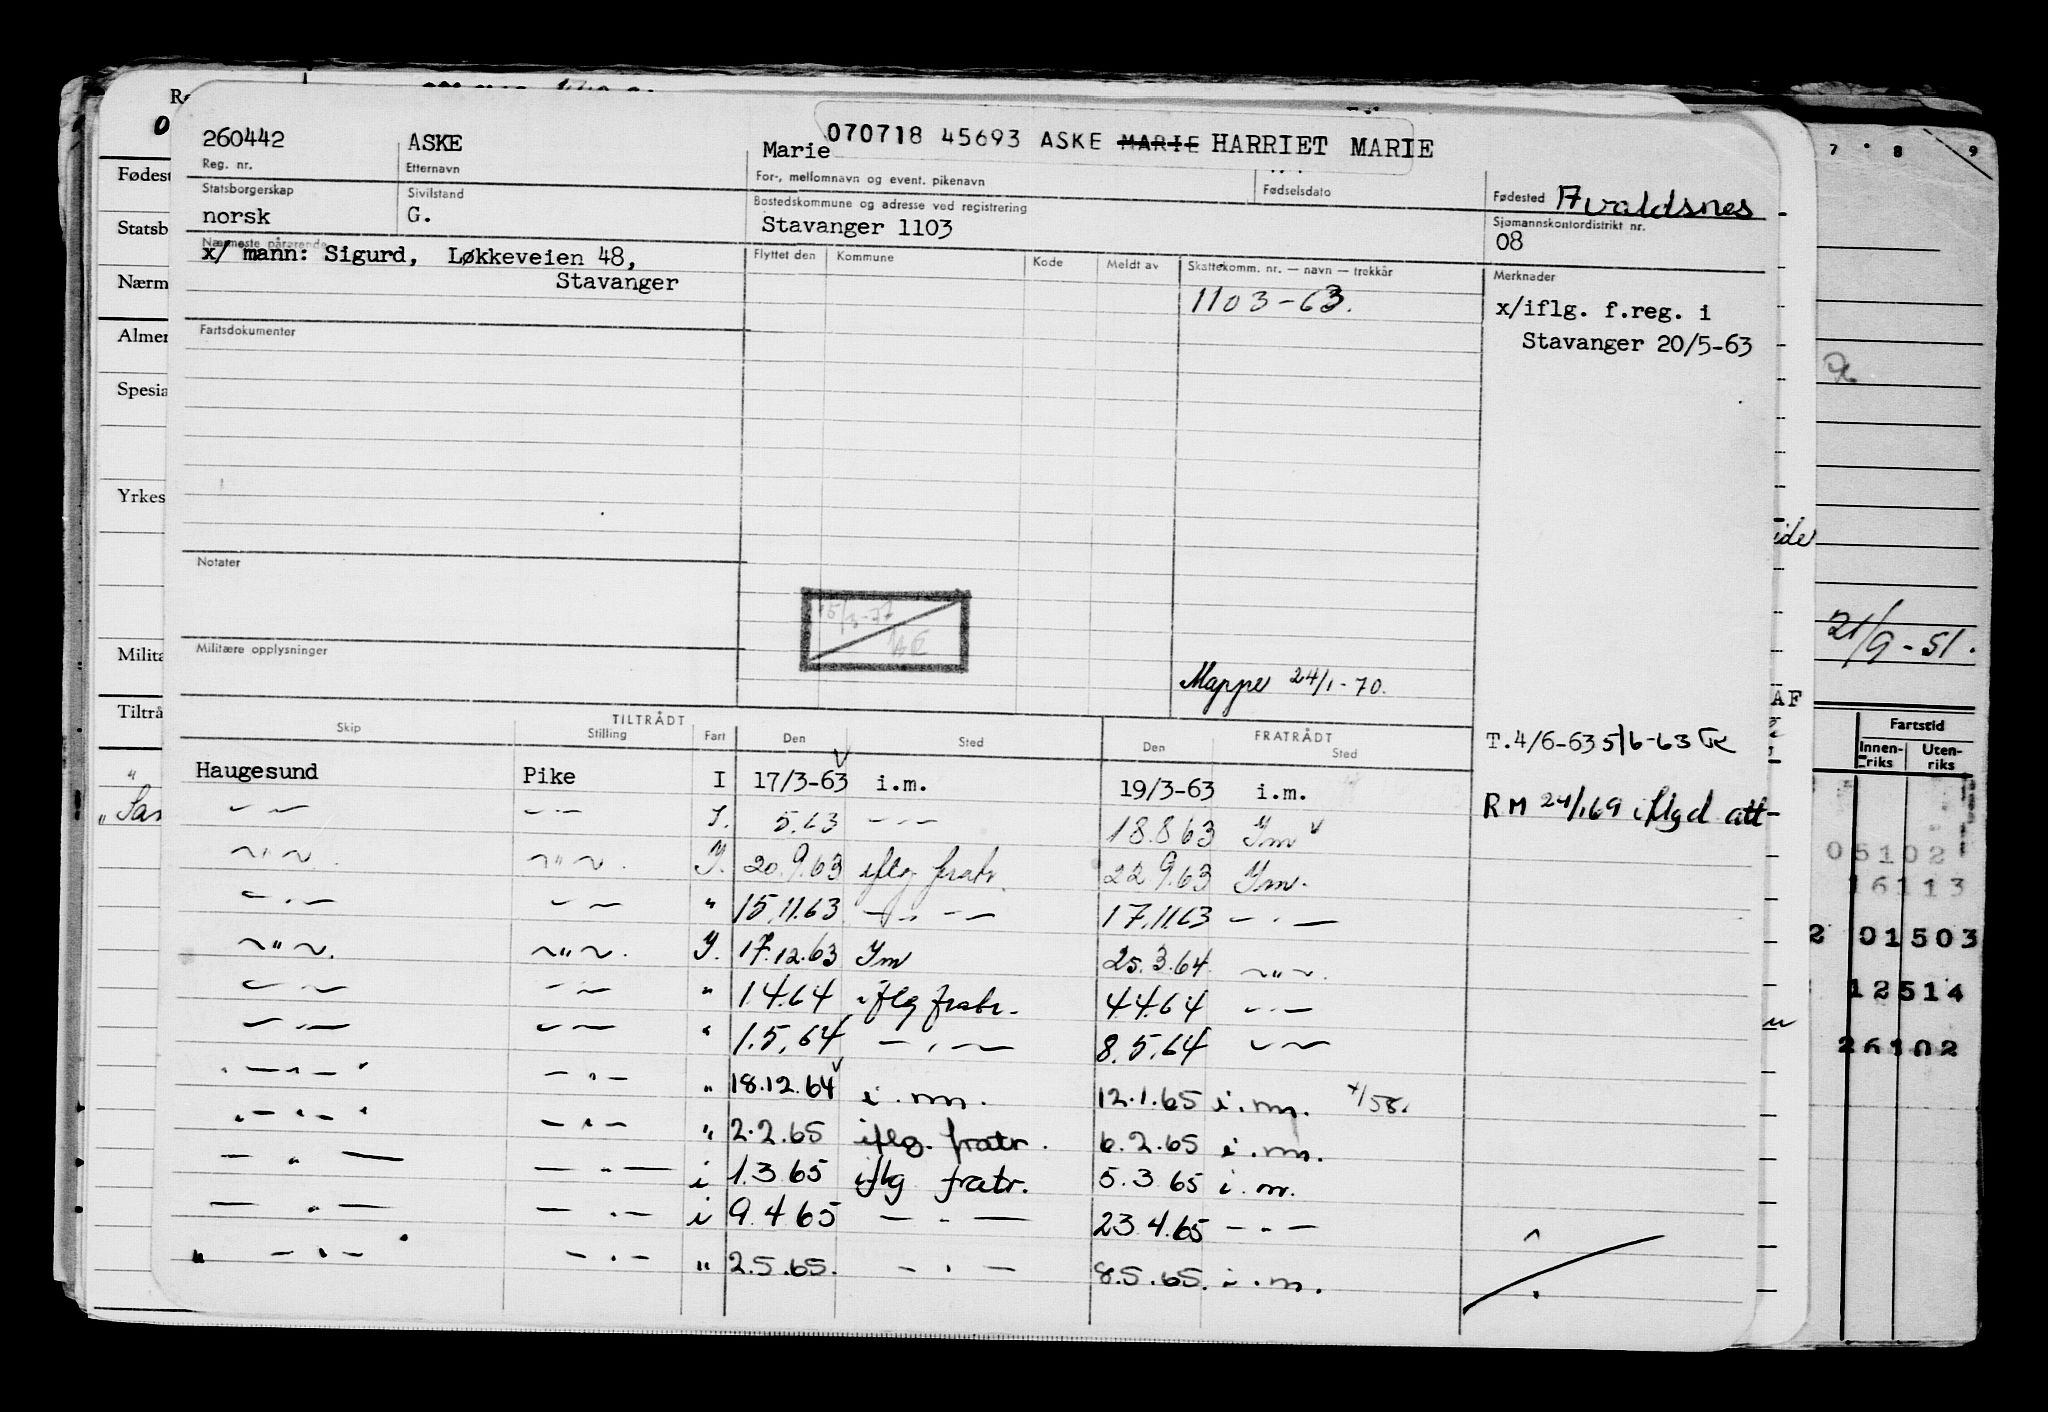 070718 45693 ASKE MARIE HARRIET MARIE
260442 ASKE Marie
Reg. nr. Etternavn For-, mellomnavn og event. pikenavn Fødselsdato Fødested Avaldsnes
Statsborgerskap Sivilstand Bostedskommune og adresse ved registrering Sjømannskontordistrikt nr.
norsk G. Stavanger 1103 08
Nærmeste pårørende Flyttet den Kommune Kode Meldt av Skattekomm. nr. — navn — trekkår Merknader
x/ mann: Sigurd, Løkkeveien 48,
Stavanger
1103-63.
x/iflg. f.reg. i
Stavanger 20/5-63
Fartsdokumenter
Notater
Militære opplysninger
Mappe 24/1-70.
TILTRÅDT FRATRÅDT
Skip Stilling Fart Den Sted Den Sted
T.4/6-63 5/6-63
Haugesund Pike I 17/3-63 i.m. 19/3-63 i.m.
RM 24/1 69 iflgd att
— " — — " — I. 5.63 — " — 18.8 63 Im
— " — — " — I. 20.9.63 iflg fratr. 22 9.63 Im.
— " — — " — " 15.11.63 — " — 17.11.63 — " —
— " — — " — I. 17.12.63 Im 25.3.64 — " —
— " — — " — " 1.4.64 iflg fratr. 4.4.64 — " —
— " — — " — " 1.5.64 — " — 8.5.64 — " —
— " — — " — " 18.12.64 i.m. 12.1.65 i.m. x/58.
— " — — " — " 2.2.65 iflg. fratr. 6.2.65 i.m.
— " — — " — i 1.3 65 iflg fratr. 5.3 65 i.m.
— " — — " — i 9.4 65 — " — 23.4.65 — " —
" — " — — " — " 2.5.65. — " — 8.5.65. i.m.
Fødest
Statsb
Nærm
Almen
Spesia
Yrkes
Milita
Tiltrå
7 8 9
21/9-51.
AF
Fartstid
Innen-riks Uten-riks
05102
16113
2 01503
12514
26102